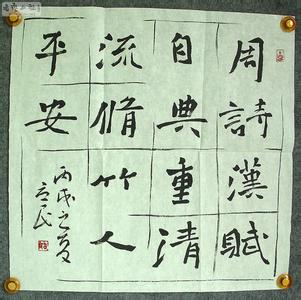 周詩漢賦
自典重清
流脩竹人
平安
丙戌之夏